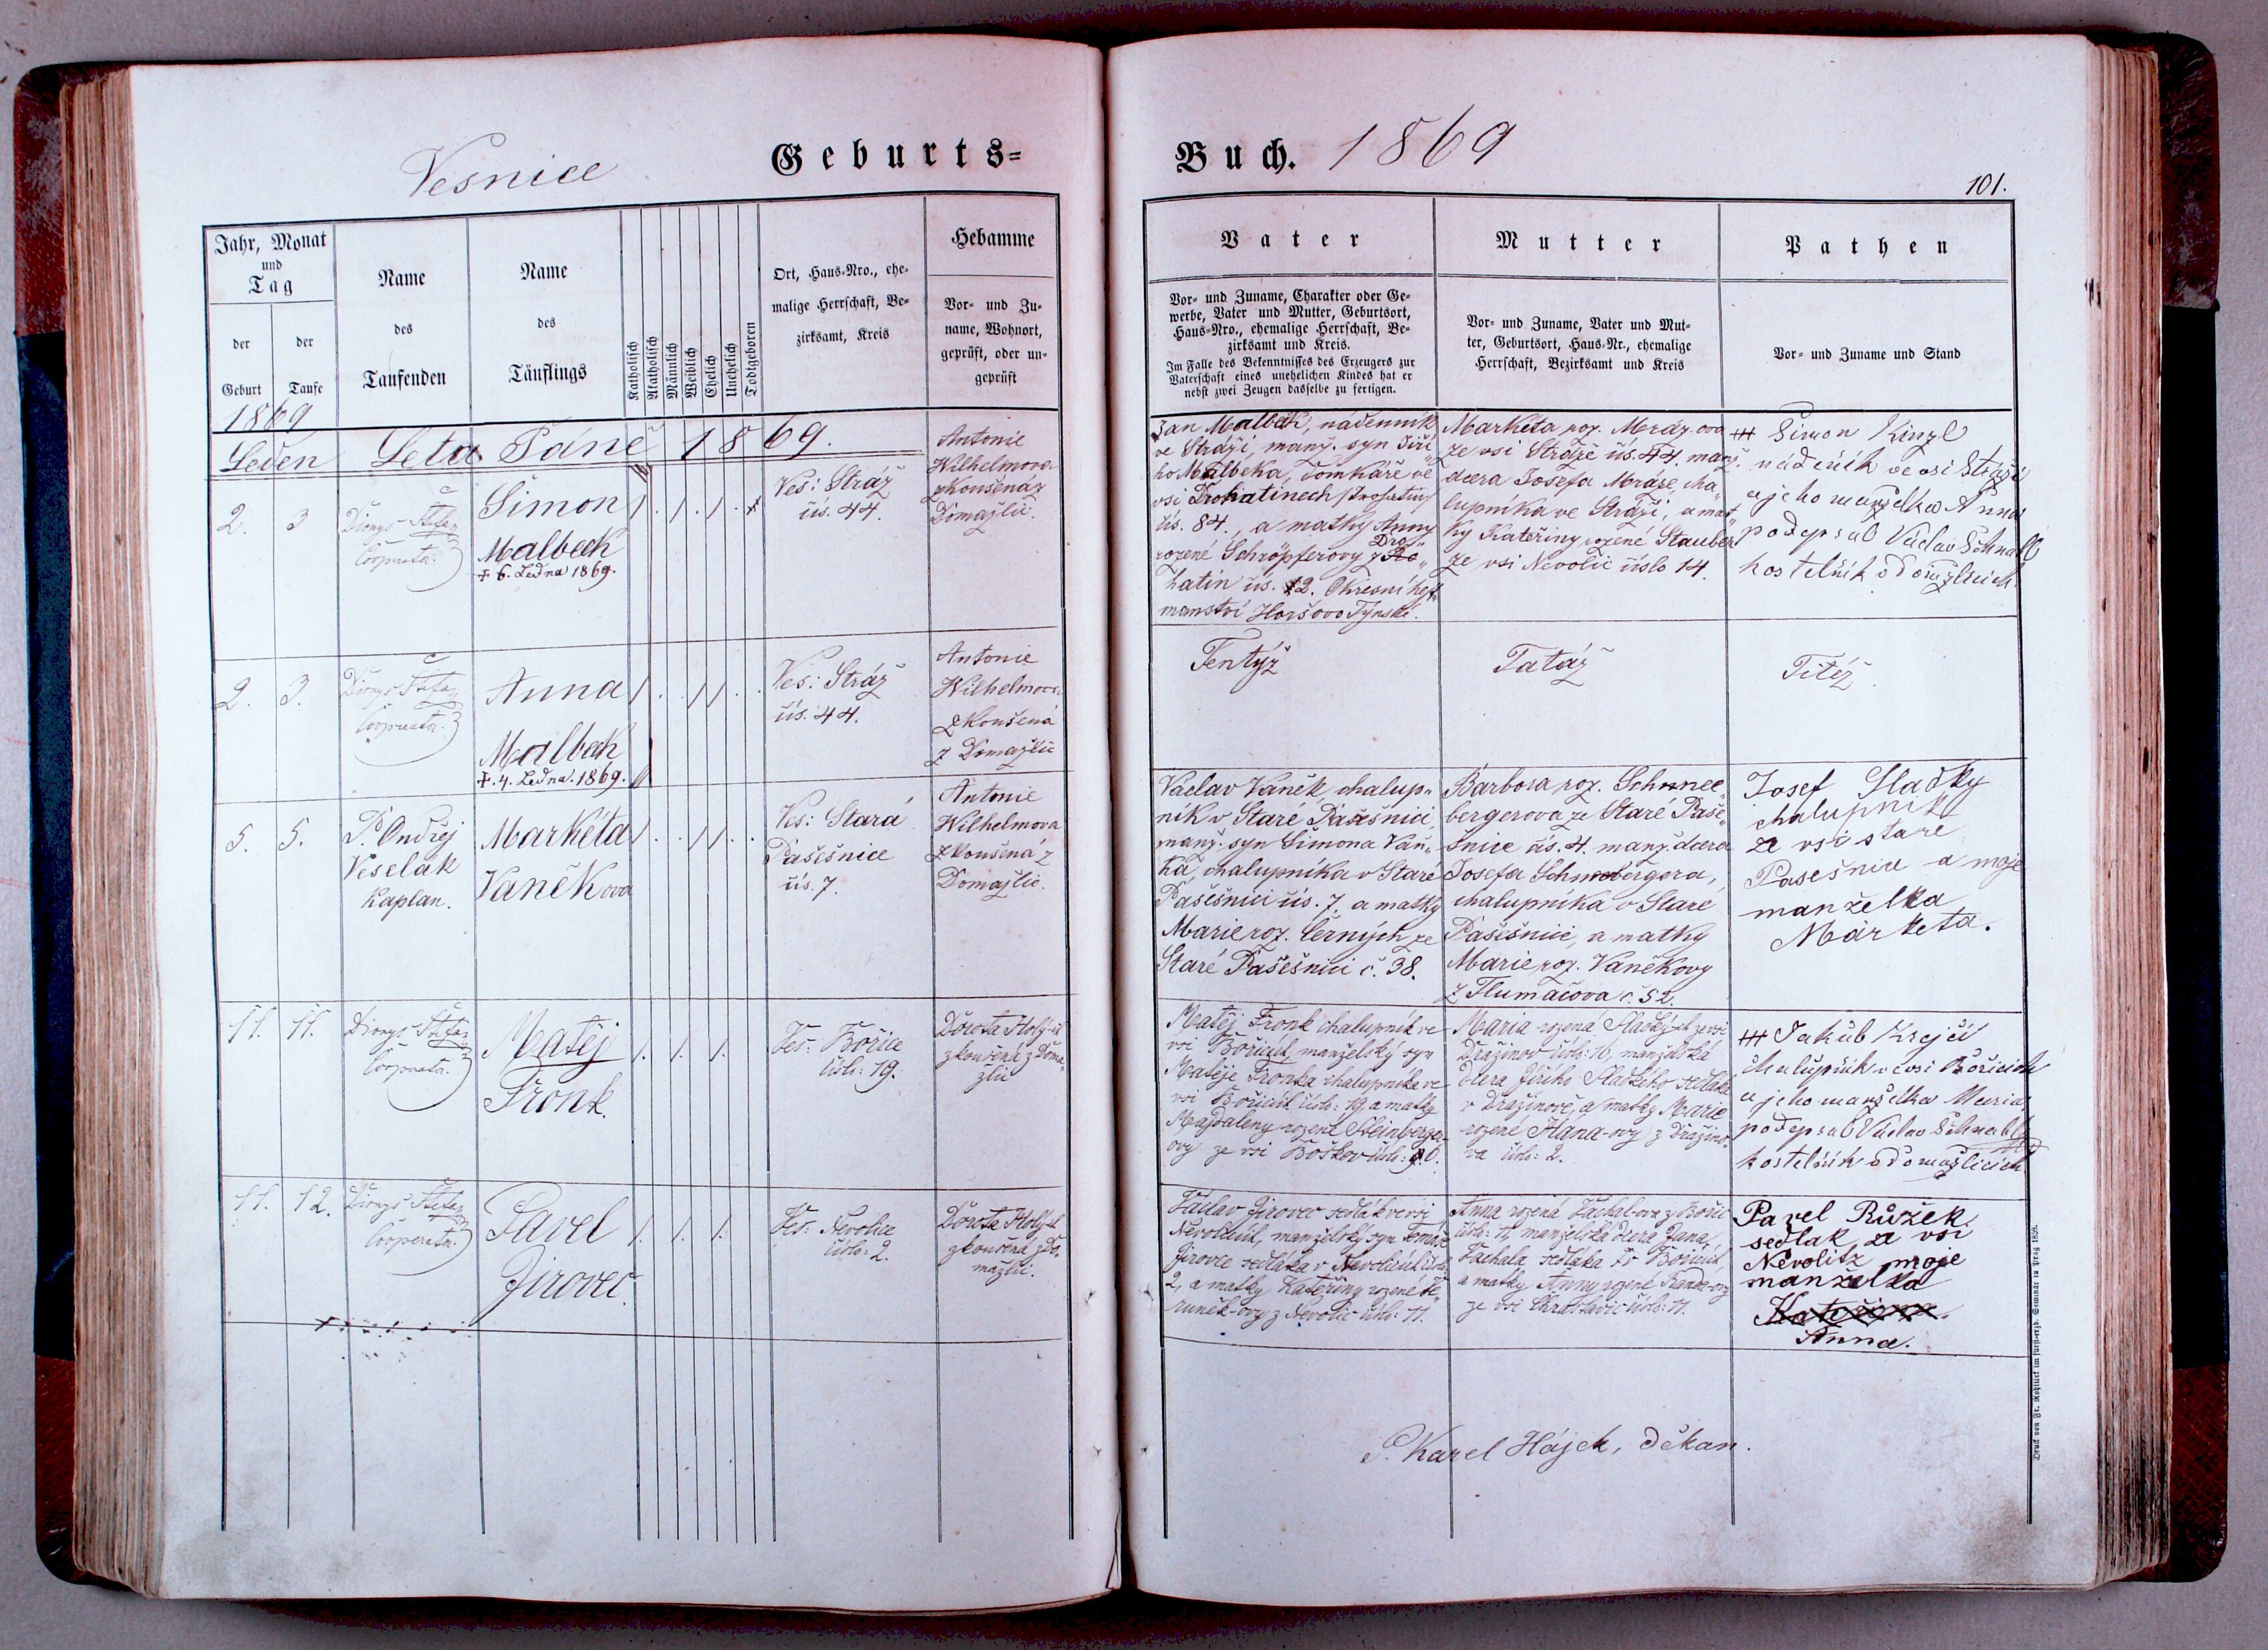 Vesnice
Geburts=
Buch. 1869
101.
Jahr, Monat
und
Tag
der
Geburt
der
Taufe
Name
des
Taufenden
Name
des
Täuflings
Katholisch
Akatholisch
Männlich
Weiblich
Ehelich
Unehelich
Todtgeboren
Ort, Haus-Nro., ehe-
malige Herrschaft, Be-
zirksamt, Kreis
Hebamme
Vor- und Zu-
name, Wohnort,
geprüft, oder un-
geprüft
Vater
Vor- und Zuname, Charakter oder Ge-
werbe, Vater und Mutter, Geburtsort,
Haus-Nro., ehemalige Herrschaft, Be-
zirksamt und Kreis.
Im Falle des Bekenntnisses des Erzeugers zur
Vaterschaft eines unehelichen Kindes hat er
nebst zwei Zeugen dasselbe zu fertigen.
Mutter
Vor- und Zuname, Vater und Mut-
ter, Geburtsort, Haus-Nr., ehemalige
Herrschaft, Bezirksamt und Kreis
Pathen
Vor- und Zuname und Stand
1869
Leden Leta Páně 1869.
2. 3
Dionys Štefan
Cooperator.
Šimon
Malbeck
+ 6. Ledna 1869.
Ves: Stráž
čís. 44.
Antonie
Wilhelmova
zkoušená z
Domažlic.
Jan Malbek, nádenník
ve Stráži, manž. syn Jiří
ho Malbeka, domkáře ve
vsi Drohatinech
čís. 84., a matky Anny
rozené Schröpferovy z Dro
hatin čís. 12. Okresní hejt
manství Horšovo Týnské.
Marketa roz. Mráz-ova
ze vsi Stráže čís. 44. manž.
dcera Josefa Mráze, cha
lupníka ve Stráži, a mat
ky Kateřiny rozené Stauber
ze vsi Nevolic číslo 14.
+++ Simon Kinzl
nádeník ve vsi Stráži
a jeho manželka Anna
podepsal Václav Schnabl
kostelník v Domažlicích.
2. 3.
Dionys Štefan
Cooperator.
Anna
Malbeck
+ 4. Ledna 1869.
Ves: Stráž
čís. 44.
Antonie
Wilhelmova
zkoušená
z Domažlic
Tentýž
Tatáž
Titéž
5. 5.
P. Ondřej
Veselák
Kaplan.
Marketa
Vaněkova
Ves: Stará
Pašešnice
čís. 7.
Antonie
Wilhelmova
zkoušená z
Domažlic.
Václav Vaněk chalup
ník v Staré Pašešnici,
manž. syn Šimona Vaň
ka, chalupníka v Staré
Pašešnici čís. 7. a matky
Marie roz. Černých ze
Staré Pašešnici č. 38.
Barbora roz. Schnee
bergerova ze Staré Paše
šnice čís. 4. manž. dcera
Josefa Schneebergera,
chalupníka v Staré
Pašešnici, a matky
Marie roz. Vaněkovy
z Tlumačova č. 52.
Josef Sladky
chalupnik
ze vsi stare
Pasešnice a moje
manželka
Marketa.
11. 11.
Dionys Štefan
Cooperator.
Matěj
Fronk.
Ves: Bořice
číslo: 19.
Dorota Holých
zkoušená z Doma
žlic
Matěj Fronk chalupník ve
vsi Bořicích, manželský syn
Matěje Fronka chalupníka ve
vsi Bořicích číslo: 19, a matky
Magdaleny rozené Steinberger-
ovy ze vsi
Maria rozená Sladkých ze vsi
Dražinov číslo: 16, manželská
dcera Jiřího Sladkého sedláka
v Dražinově, a matky Marie
rozené Hana-ovy z Dražino
va číslo: 2.
+++ Jakub Krejčí
chalupník ve vsi Bořicích
a jeho manželka Maria,
podepsal Václav Schnabl
kostelník v Domažlicích
11. 12.
Dionys Štefan
Cooperator.
Pavel
Jirovec.
Ves: Nevolice
číslo: 2.
Dorota Holých
zkoušená z Do
mažlic.
Václav Jirovec sedlák ve vsi
Nevolicích, manželský syn Tomáše
Jirovce sedláka v Nevolicích číslo
2, a matky Kateřiny rozené
z Nevolic číslo: 11.
Anna rozená Tachal-ova z Bořic
číslo: 11, manželská dcera Jana
Tachala sedláka v Bořicích,
a matky Anny rozené
ze vsi Chrastavic číslo: 11.
Pavel Růžek.
sedlak, ze vsi
Nevolitz moje
manželka
Kateřina.
Anna.
P. Karel Hájek, děkan.